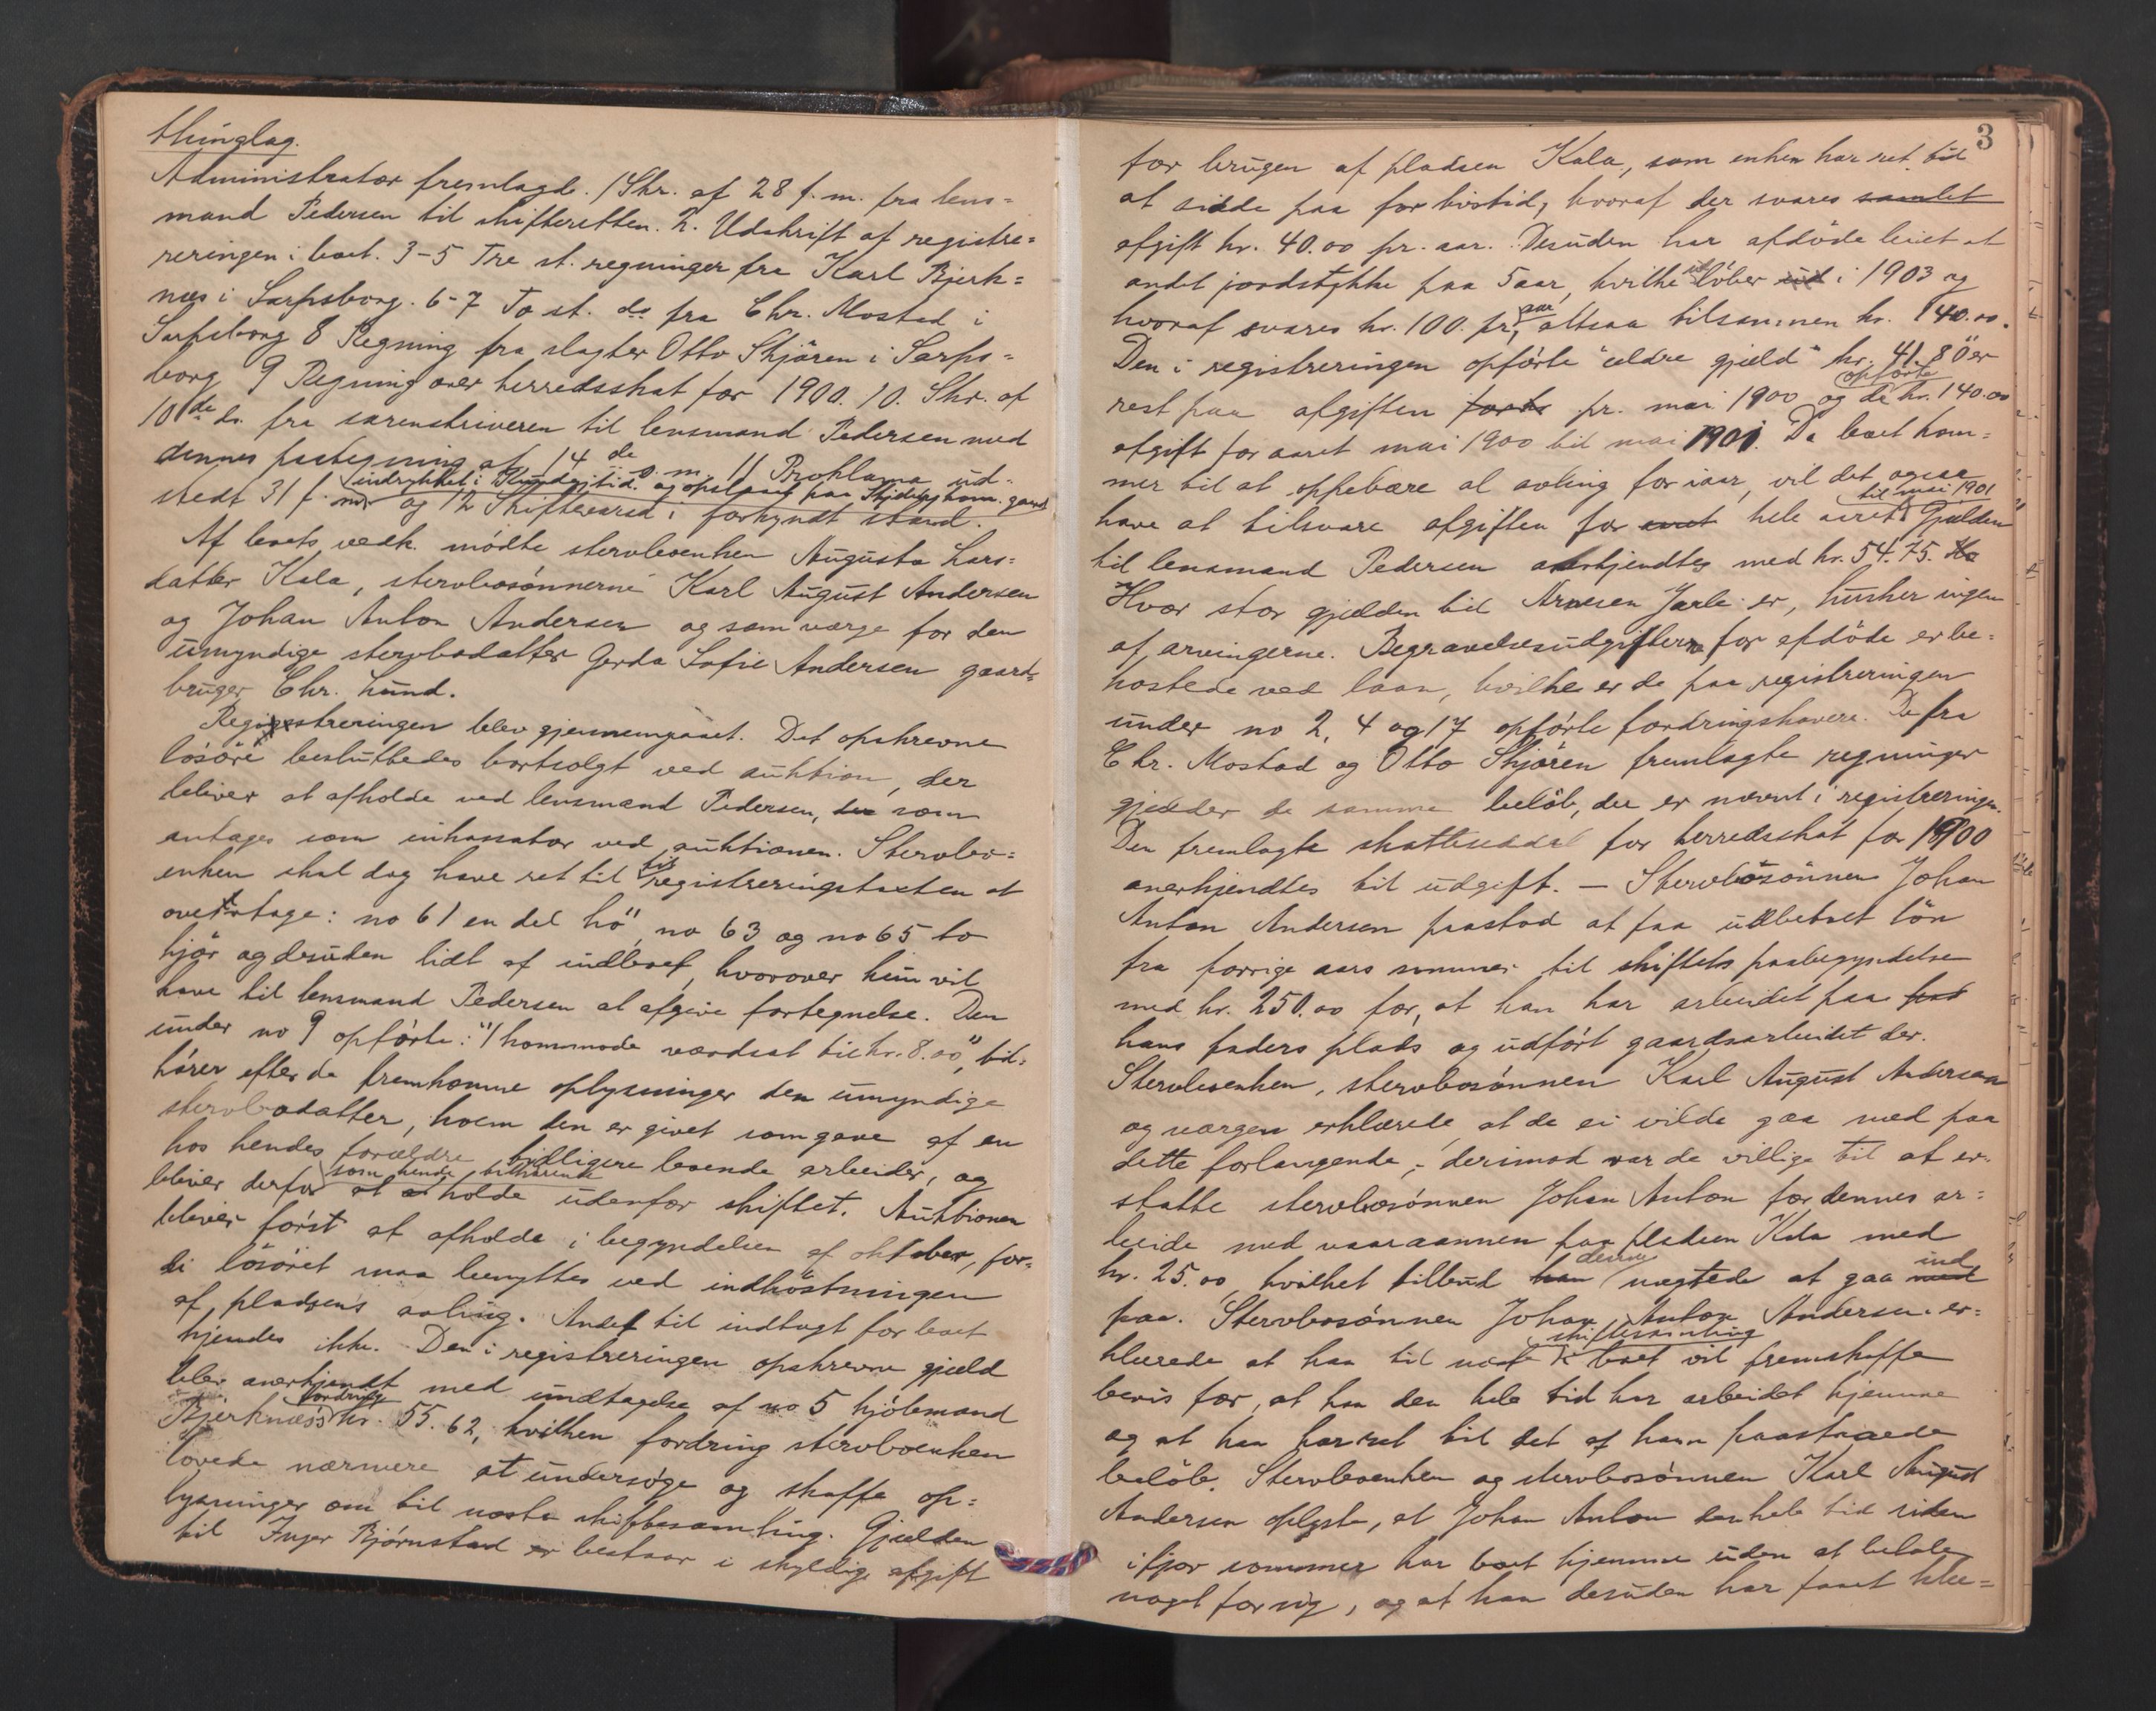 thinglag.
Administrator fremlagde. 1 Skr. af 28 f. m. fra lens=
mand Pedersen til skifteretten. 2. Udskrift af registre=
reringen i boet. 3-5 Tre st. regninger fra Karl Bjerk=
næs i Sarpsborg. 6-7 To st. do fra Chr. Mostad i
Sarpsborg 8 Regning fra slagter Otto Skjören i Sarps=
borg 9 Regning over herredsskat for 1900. 10. Skr. af
10de ds. fra sorenskriveren til lensmand Pedersen med
dennes paategning af 14de s. m. 11 Proklama ud-
indrykket i Kundgj.tid. og opslaaet paa gaard
stedt 31 f. mdr og 12 Skiftevarsel i forkyndt stand.
Af boets vedk. mødte stervboenken Augusta Lars=
datter Kala, stervbosønnerne Karl August Andersen
og Johan Anton Andersen og som værge for den
umyndige stervbodatter Gerda Sofie Andersen gaard=
bruger Chr. Lund.
Registreringen blev gjennemgaaet. Det opskrevne
løsøre besluttedes bortsolgt ved auktion, der
bliver at afholde ved lensmand Pedersen, der som
antages som inkassator ved auktionen. Stervbo=
enken skal dog have ret til til registreringstaksten at
overtage: no 61 en del hö, no 63 og no 65 to
kjör og desuden lidt af indboet, hvorover hun vil
have til lensmand Pedersen at afgive fortegnelse. Den
under no 9 opförte: "1 kommode værdsat til kr. 8.00", til=
hører efter de fremkomne oplysninger den umyndige
stervbodatter, hvem den er givet som gave af en
hos hendes forældre tidligere boende arbeider, og
som hende tilhørende
bliver derfor at holde udenfor skiftet. Auktionen
bliver først at afholde i begyndelsen af oktober, for=
di løsöret maa benyttes ved indhöstningen
af pladsens avling. Andet til indtægt for boet
kjendes ikke. Den i registreringen opskrevne gjæld
blev anerkjendt med undtagelse af no 5 kjöbmand
fordring
Bjerknæs's kr. 55.62, hvilken fordring stervboenken
lovede nærmere at undersøge og skaffe op=
lysninger om til næste skiftesamling. Gjælden
til Inger Bjørnstad er bestaar i skyldig afgift
3
for brugen af pladsen Kala, som enken har ret til
at sidde paa for livstid, hvoraf der svares samlet
afgift kr. 40.00 pr. aar. Desuden har afdöde leiet et
andet jordstykke paa 5 aar, hvilke ud löber ud i 1903 og
hvoraf svares kr. 100. pr. aar, altsaa tilsammen kr. 140.00.
Den i registreringen opførte "ældre gjæld" kr. 41.80 er
opførte
rest paa afgiften pr. mai 1900 og de kr. 140.00
afgift for aaret mai 1900 til mai 1901. Da boet kom=
mer til at oppebære al avling for iaar, vil det ogsaa
til mai 1901
have at tilsvare afgiften for aaret hele aaret. Gjælden
til lensmand Pedersen anerkjendtes med kr. 54.75.
Hvor stor gjælden til Arnesen Jarle er, husker ingen
af arvingerne. Begravelsesudgifterne for afdöde er be=
kostede ved laan, hvilke er de paa registreringen
under no 2, 4 og 17 opførte fordringshavere. De fra
Chr. Mostad og Otto Skjören fremlagte regninger
gjælder de samme belöb, der er nævnt i registreringen.
Den fremlagte skatteseddel for herredsskat for 1900
anerkjendtes til udgift. — Stervbosönnen Johan
Anton Andersen paastod at faa udbetalt lön
fra forrige aars sommer til skiftets paabegyndelse
med kr. 250.00 for, at han har arbeidet paa
hans faders plads og udført gaardsarbeidet der.
Stervboenken, stervbosønnen Karl August Andersen
og værgen erklærede, at de ei vilde gaa med paa
dette forlangende; derimod var de villige til at er=
statte stervbosønnen Johan Anton for dennes ar=
beide med vaaraannen paa pladsen Kala med
kr. 25.00, hvilket tilbud han denne nægtede at gaa med ind
paa. Stervbosønnen Johan Anton Andersen er=
skiftesamling
klærede at han til næste i boet vil fremskaffe
bevis for, at han den hele tid har arbeidet hjemme
og at han har ret til det af ham paastaaede
belöb. Stervboenken og stervbosønnen Karl August
Andersen oplyste, at Johan Anton den hele tid siden
ifjor sommer har boet hjemme uden at betale
noget for sig, og at han desuden har faaet klæ=